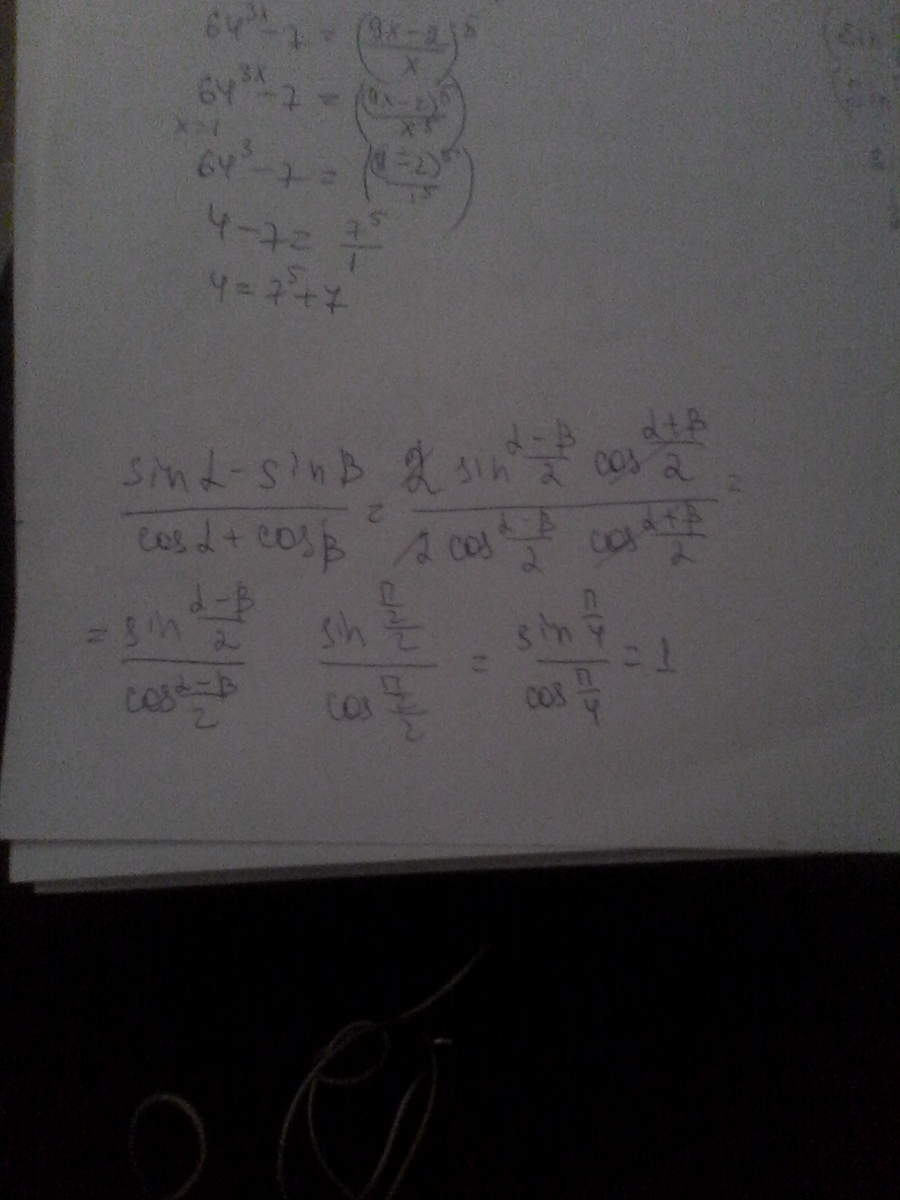 64^{3x} - 7 = (\frac{9x-2}{x})^5
64^{3x} - 7 = (\frac{(9x-2)^5}{x^5})
x=1
64^3 - 7 = (\frac{(9-2)^5}{1^5})
4 - 7 = \frac{7^5}{1}
4 = 7^5 + 7
\frac{sin α - sin β}{cos α + cos β} = \frac{2 sin \frac{α-β}{2} cos \frac{α+β}{2}}{2 cos \frac{α-β}{2} cos \frac{α+β}{2}} =
= \frac{sin \frac{α-β}{2}}{cos \frac{α-β}{2}} \frac{sin \frac{\frac{π}{2}}{2}}{cos \frac{\frac{π}{2}}{2}} = \frac{sin \frac{π}{4}}{cos \frac{π}{4}} = 1
(sin
(sin